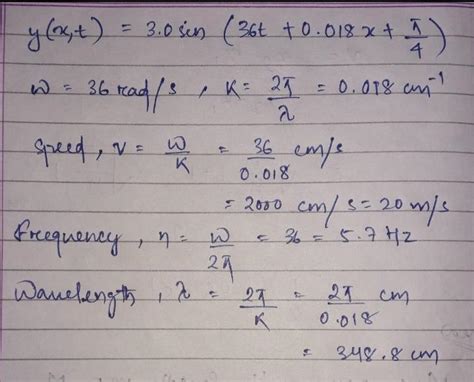 y(x,t) = 3.0 sin (36t + 0.018x + π/4)
ω = 36 rad/s , K = 2π/λ = 0.018 cm⁻¹
Speed, v = ω/K = 36/0.018 cm/s
= 2000 cm/s = 20 m/s
Frequency, η = ω/2π = 36 = 5.7 Hz
Wavelength, λ = 2π/K = 2π/0.018 cm
= 348.8 cm